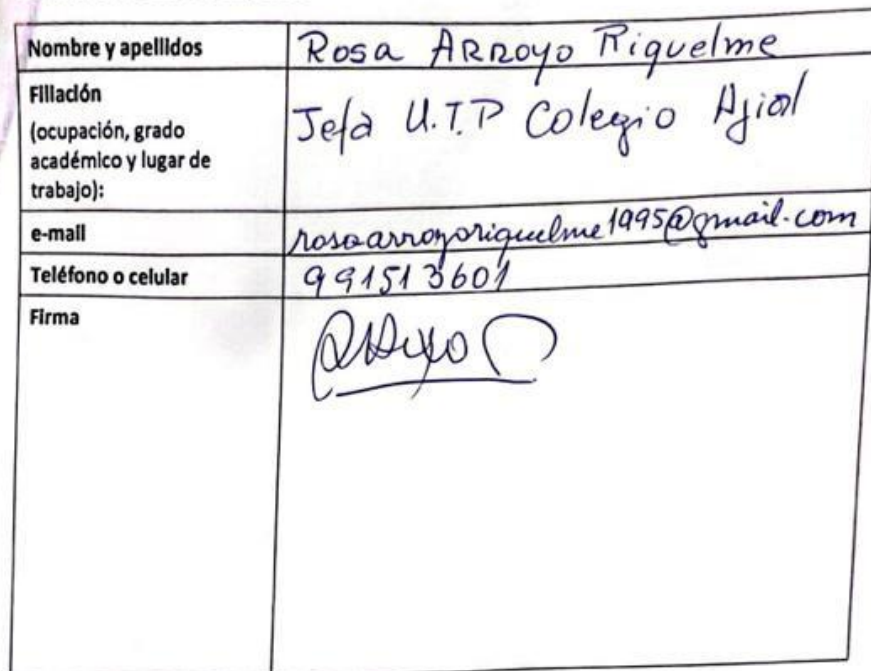 Nombre y apellidos
Rosa Arroyo Riquelme
Filiación
(ocupación, grado
académico y lugar de
trabajo):
Jefa U.T.P Colegio
e-mail
rosaarroyoriquelme1995@gmail.com
Teléfono o celular
991513601
Firma